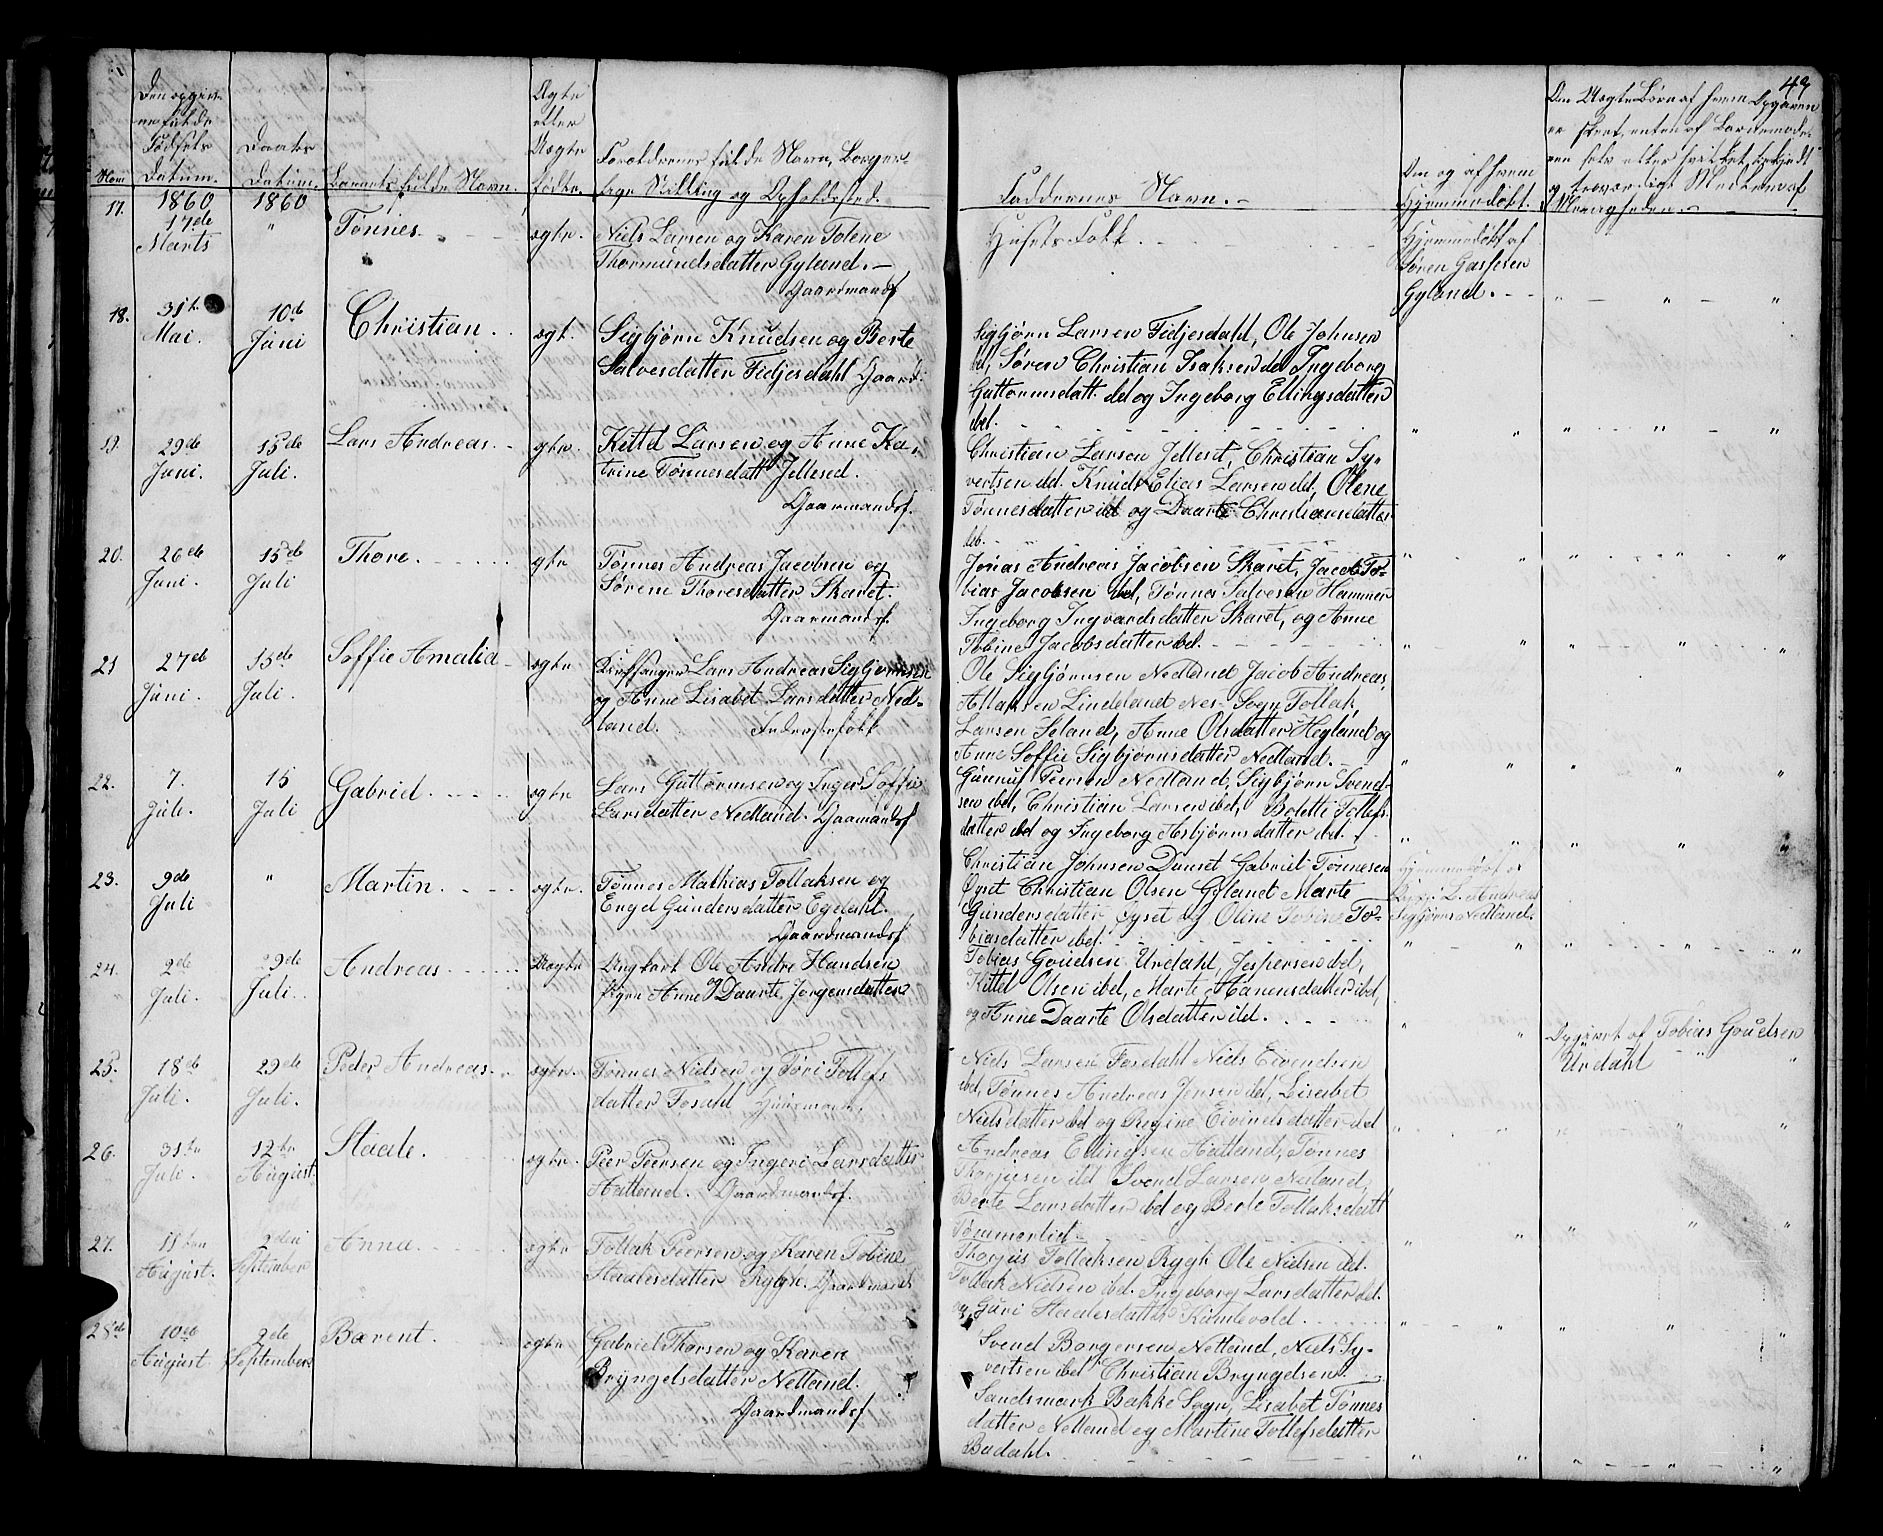 49
Den opgivne fulde Fødsels Datum.
Daabs Datum.
Barnets fulde Navn.
Ægte eller Uægte fødte.
Forældrenes fulde Navn, Borgerlige Stilling og Opholdssted.
Faddernes Navn.
Om og af hvem Hjemmedøbt.
Om Uægte Børn af hvem Opgaven
er skeet, enten af Barnemode-
ren selv eller hvilket bekjedt
og troværdigt Medlem af
Menigheden.
17. 1860 1860
17de Marts " Tønnes. ægte. Niels Larsen og Karen Tolene
Thormundsdatter Gyland.
Gaardmandsf
Husets Folk.
Hjemmedøbt af
Søren
Gyland. " " "
18. 31te Mai. 10de Juni Christian. ægt. Sigbjørn Knudsen og Berte
Salvesdatter Fidjesdahl Gaard:
Sigbjørn Larsen Fidjesdahl, Ole Johnsen
ibd, Søren Christian Isaksen ibd Ingeborg
Guttormsdatt. ibd og Ingeborg Ellingsdatter
ibd. " " " " "
19. 29de Juni. 15de Juli. Lars Andreas. ægte. Kittel Larsen og Anne Ka-
trine Tønnesdatt Jellesd.
Gaarmandsf.
Christian Larsen Jellesd, Christian Sy-
vertsen ibd. Knud Elias Larsen ibd, Olene
Tønnesdatter ibd og Daarte Christiansdatter
ibd. " " " " "
20. 26de Juni. 15de Juli Thore. ægte Tønnes Andreas Jacobsen og
Sørene Thoresdatter Skaret.
Gaarmandsf.
Jonas Andreas Jacobsen Skaret, Jacob To-
bias Jacobsen ibd, Tønnes Salvesen Hammer
Ingeborg Ingvardsdatter Skaret, og Anne
Tobine Jacobsdatter ibd. " " " " "
21 27de Juni. 15de Juli. Soffie Amalia ægte. Kirkesanger Lars Andreas Sigbjørnsen
og Anne Lisabet Larsdatter Ned-
land. Inderstefolk
Ole Sigbjørnsen Nedland Jacob Andreas
Atlaksen Lindeland Nes-Sogn Tollak
Larsen Seland, Anne Olsdatter Hegland og
Anne Soffie Sigbjørnsdatter Nedland. " " " " "
22. 7. Juli. 15 Juli Gabriel. ægte Lars Guttormsen og Inger Soffie
Larsdatter Nedland. Gaamandsf
Gunnuf Peersen Nedland, Sigbjørn Svend-
sen ibd, Christian Larsen ibd, Bolette Tollefs-
datter ibd og Ingeborg Asbjørnsdatter ibd. " " " " "
23. 9de Juli " Martin. ægte. Tønnes Mathias Tollaksen og
Engel Gundersdatter Egedahl.
Gaardmandsf
Christian Johnsen Dunset Gabriel Tønnesen
Øyset Christian Olsen Gyland Marte
Gundersdatter Øyset og Oline Tobine To-
biasdatter ibd.
Hjemmedøbt af
L. Andreas
Sigbjørns Nedland.
" " " " "
24. 2de Juli. 29de Juli. Andreas. Uægte Ungkarl Ole Andre Hansen
Pigen Anne Daarte Jørgensdatter
Tobias Goudsen Urdahl, Jespersen ibd,
Kittel Olsen ibd, Marte Hanensdatter ibd,
og Anne Daarte Olsdatter ibd. " "
Opgivet af Tobias Goudsen
Urdahl " "
25. 18de Juli. 29de Juli. Peder Andreas. ægte. Tønnes Nielsen og Tori Tollefs
datter Fosdahl Huusmand.
Niels Larsen Fosdahl Niels Eivendsen
ibd, Tønnes Andreas Jensen ibd, Lisabet
Nielsdatter ibd og Regine Eivindsdatter ibd " " " " "
26. 31te Juli. 12te August Staale. ægte. Peer Peersen og Ingeri Larsdatter
Aatland. Gaardmandsf.
Andreas Ellingsen Aatland, Tønnes
Thorjusen ibd Svend Larsen Neland,
Berte Larsdatter ibd og Berte Tollaksdatt
Tømmerlid. " " " " "
27. 11ten August. 2den September Anna. ægte Tollak Peersen og Karen Tobine
Staalesdatter Rygk. Gaardmandsf
Thorjus Tollaksen Rygk Ole Nielsen ibd.
Tollak Nielsen ibd. Ingeborg Larsdatter ibd.
og Guri Staalesdatter Kumlevold. " " " " "
28de 10de August 2de September Bærent. ægte Gabriel Thorsen og Karen
Bryngelsdatter Netland.
Gaardmandsf
Svend Borgersen Netland, Niels Sy-
vertsen ibd Christian Bryngelsen
Sandsmark Bakke Sogn, Lisabet Tønnes
datter Netland og Martine Tollefsdatter
Badahl. " " " " "